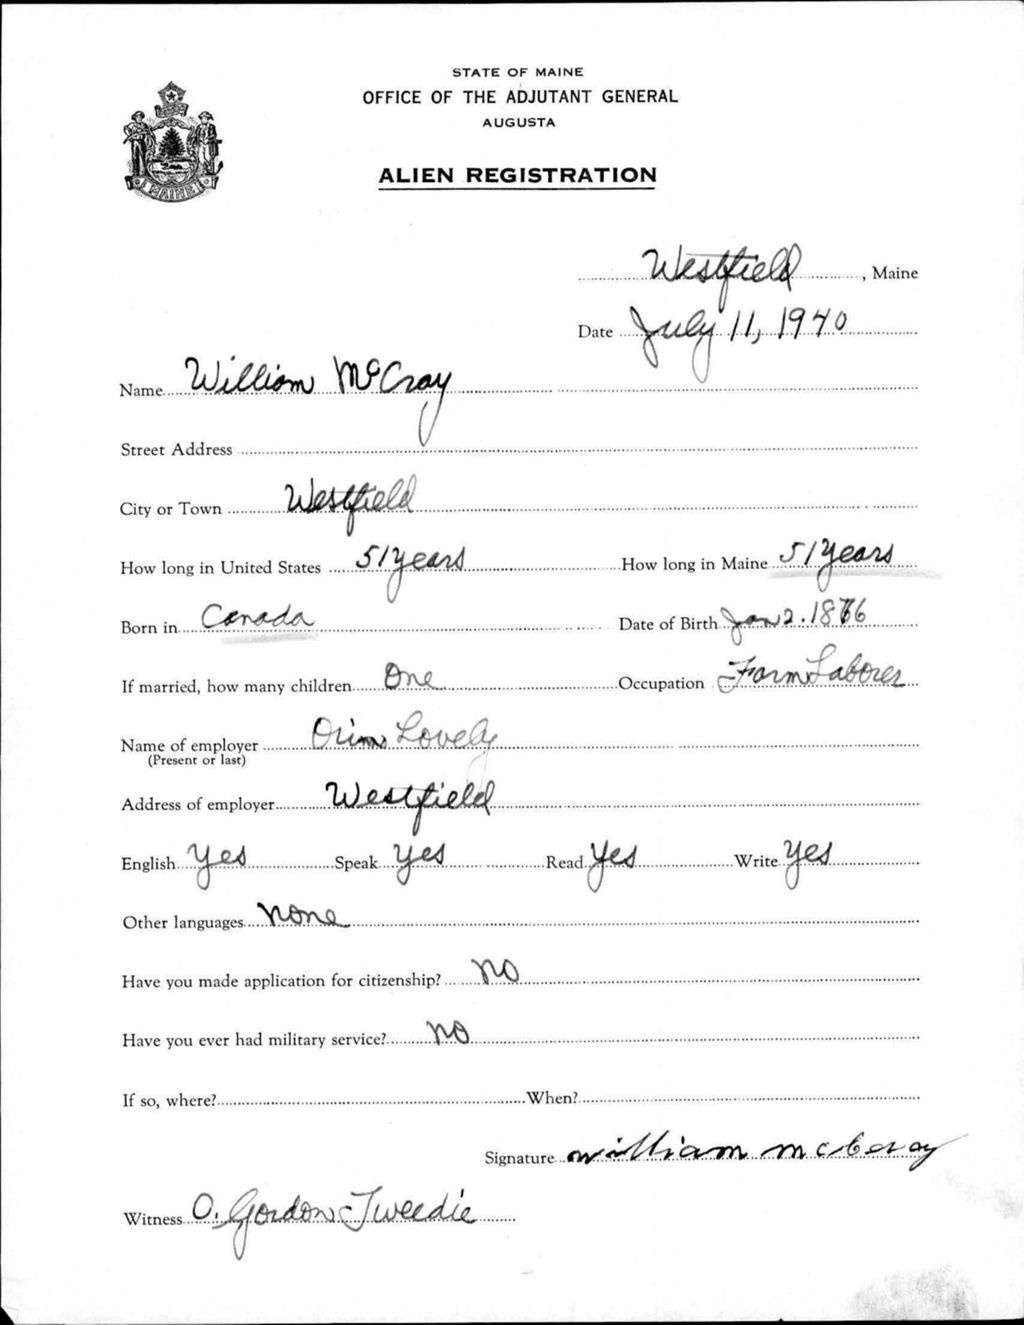 STATE OF MAINE
OFFICE OF THE ADJUTANT GENERAL
AUGUSTA
ALIEN REGISTRATION
MAINE
Westfield, Maine
Date July 11, 1940
Name William McCray
Street Address
City or Town Westfield
How long in United States 51 years How long in Maine 51 years
Born in Canada Date of Birth Jan 2. 1876
If married, how many children One Occupation Farm Laborer
Name of employer Orin Lovely
(Present or last)
Address of employer Westfield
English Yes Speak Yes Read Yes Write Yes
Other languages None
Have you made application for citizenship? No
Have you ever had military service? No
If so, where? When?
Signature william
Witness O. Gordon Tweedie